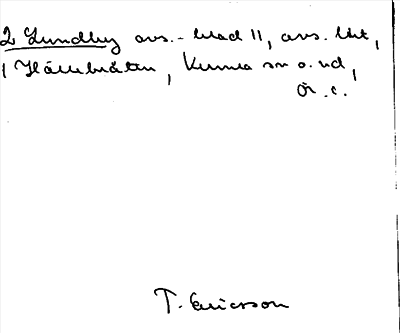 2 Lundby avs.-blad 11, avs. lht,
1 Hällebråten, Kumla sn o. hd,
Ör. l.
T. Ericsson